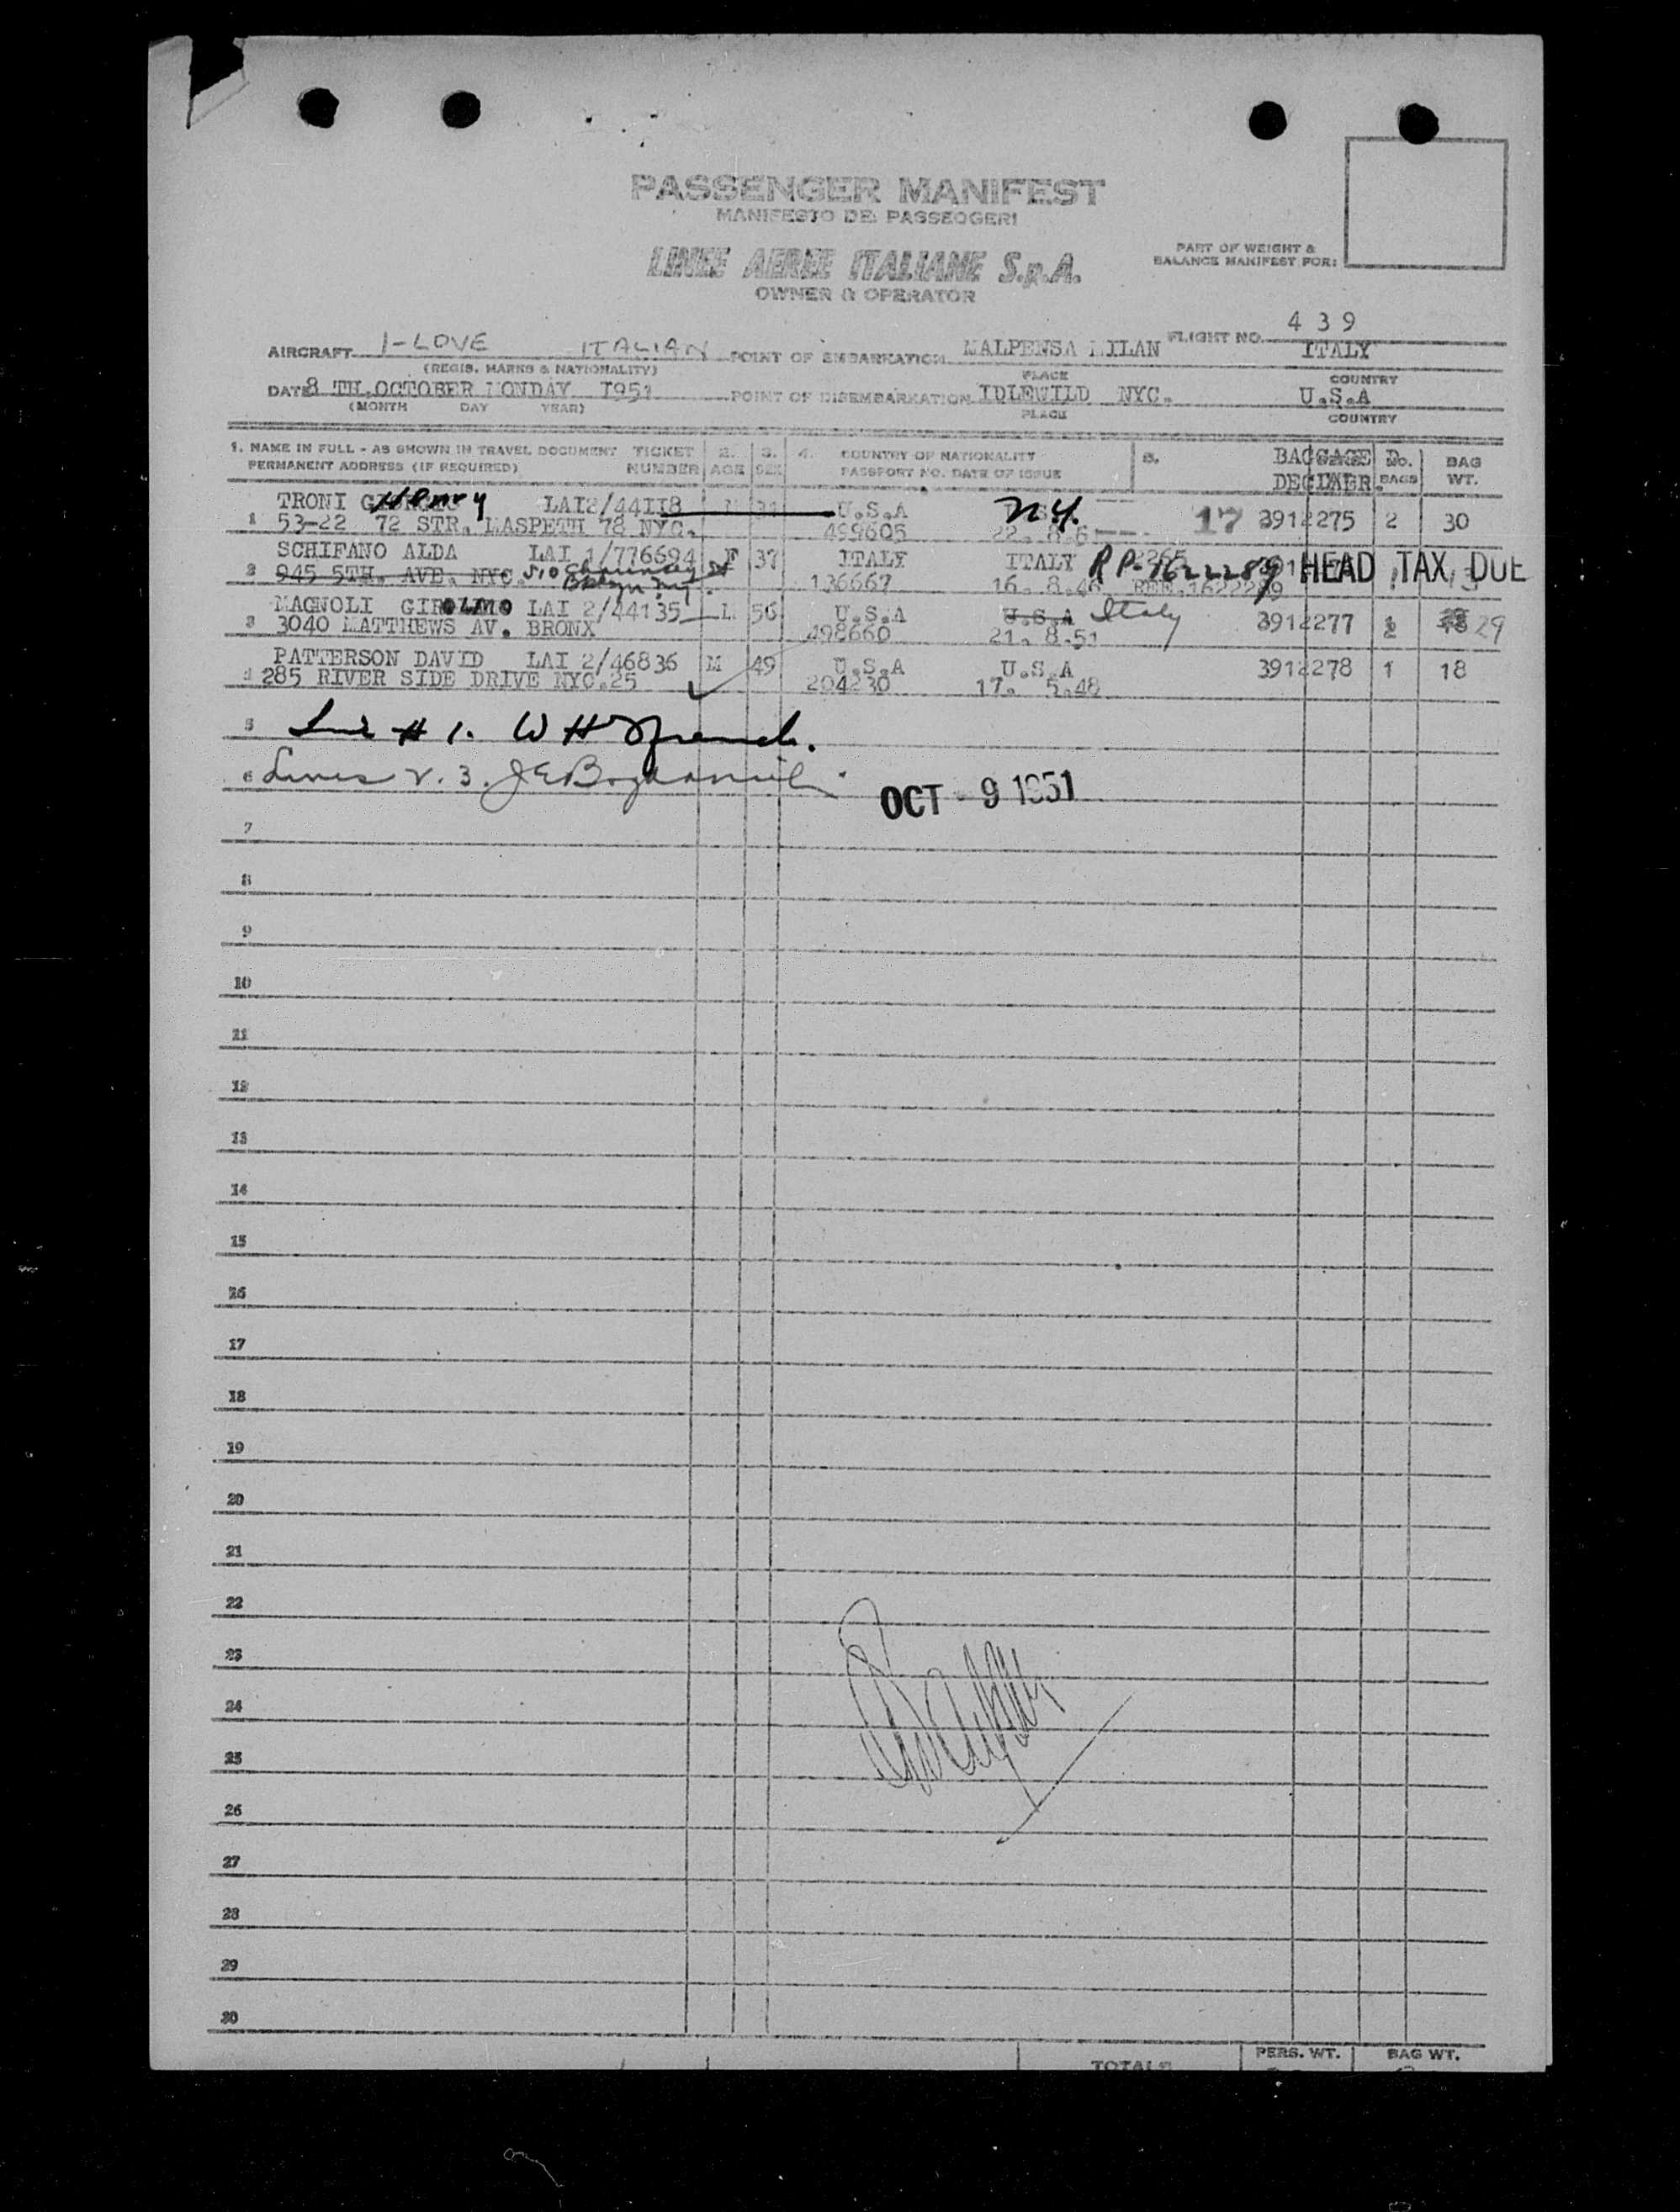 PASSENGER MANIFEST
MANIFESTO DEI PASSEGGERI
LINEE AEREE ITALIANE S.p.A.
OWNER & OPERATOR
PART OF WEIGHT &
BALANCE MANIFEST FOR:
AIRCRAFT I-LOVE ITALIAN POINT OF EMBARKATION MALPENSA MILAN FLIGHT NO. 439 ITALY
(REGIS. MARKS & NATIONALITY) PLACE COUNTRY
DATE 8 TH.OCTOBER MONDAY 1951 POINT OF DISEMBARKATION IDLEWILD NYC. U.S.A
(MONTH DAY YEAR) PLACE COUNTRY
1. NAME IN FULL - AS SHOWN IN TRAVEL DOCUMENT TICKET 2. 3. 4. COUNTRY OF NATIONALITY 5. BAGGAGE NO. BAG
PERMANENT ADDRESS (IF REQUIRED) NUMBER AGE SEX PASSPORT NO. DATE OF ISSUE BAGS WT.
TRONI Henry LAI2/44118 M 31 U.S.A N.Y.
1 53-22 72 STR. MASPETH 78 NYC. 499605 22. 8. 17 3912275 2 30
SCHIFANO ALDA LAI 1/776694 F 37 ITALY ITALY RP-1622289 HEAD TAX DUE
2 945 5TH. AVE. NYC. 510 St Bklyn N.Y. 136667 16. 8.46 REE.1622289 13
MAGNOLI GIROLMO LAI 2/44135 M 56 U.S.A U.S.A Italy
3 3040 MATTHEWS AV. BRONX 498660 21. 8.51 3912277 2 29
PATTERSON DAVID LAI 2/46836 M 49 U.S.A U.S.A 3912278 1 18
4 285 RIVER SIDE DRIVE NYC.25 204230 17. 5.48
5 Line # 1. W H French.
6 Lines 2. 3.
OCT - 9 1951
7
8
9
10
11
12
13
14
15
16
17
18
19
20
21
22
23
24
25
26
27
28
29
30
TOTALS PERS. WT. BAG WT.